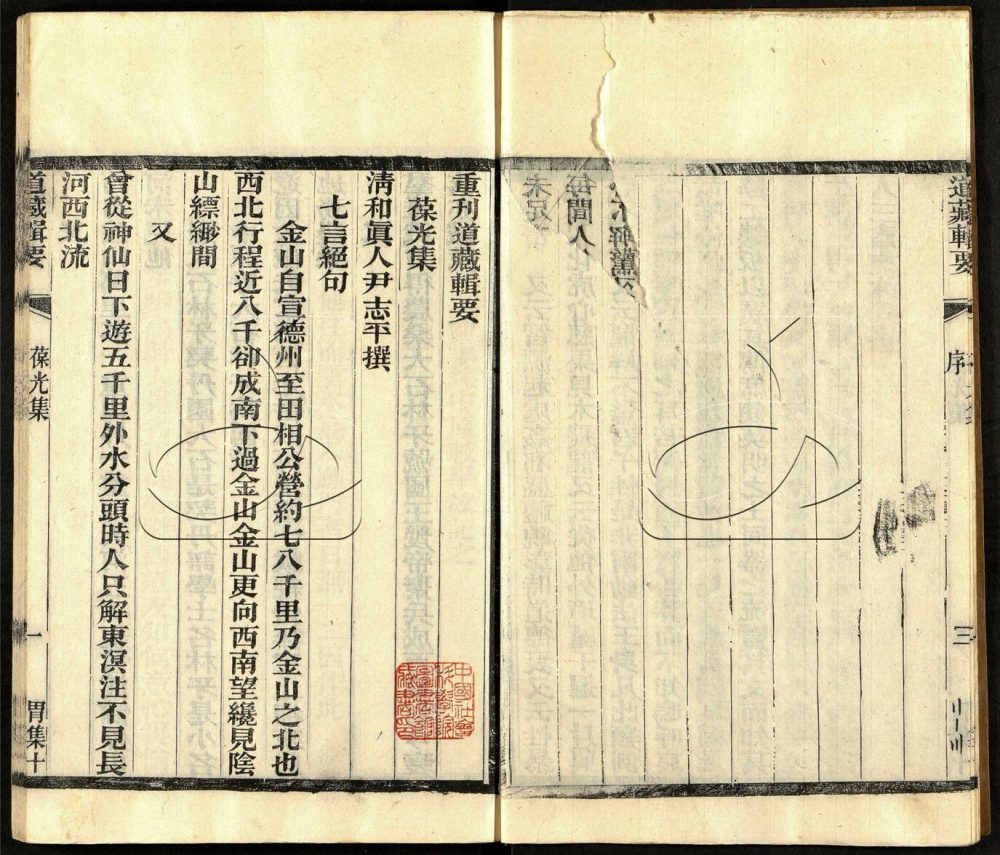 道藏輯要
序
三
每聞人
未足
重刊道藏輯要
葆光集
清和眞人尹志平撰
七言絕句
金山自宣德州至田相公營約七八千里乃金山之北也
西北行程近八千卻成南下過金山金山更向西南望纔見陰
山縹緲間
又
曾從神仙日下遊五千里外水分頭時人只解東溟注不見長
河西北流
道藏輯要
葆光集
一
胃集十